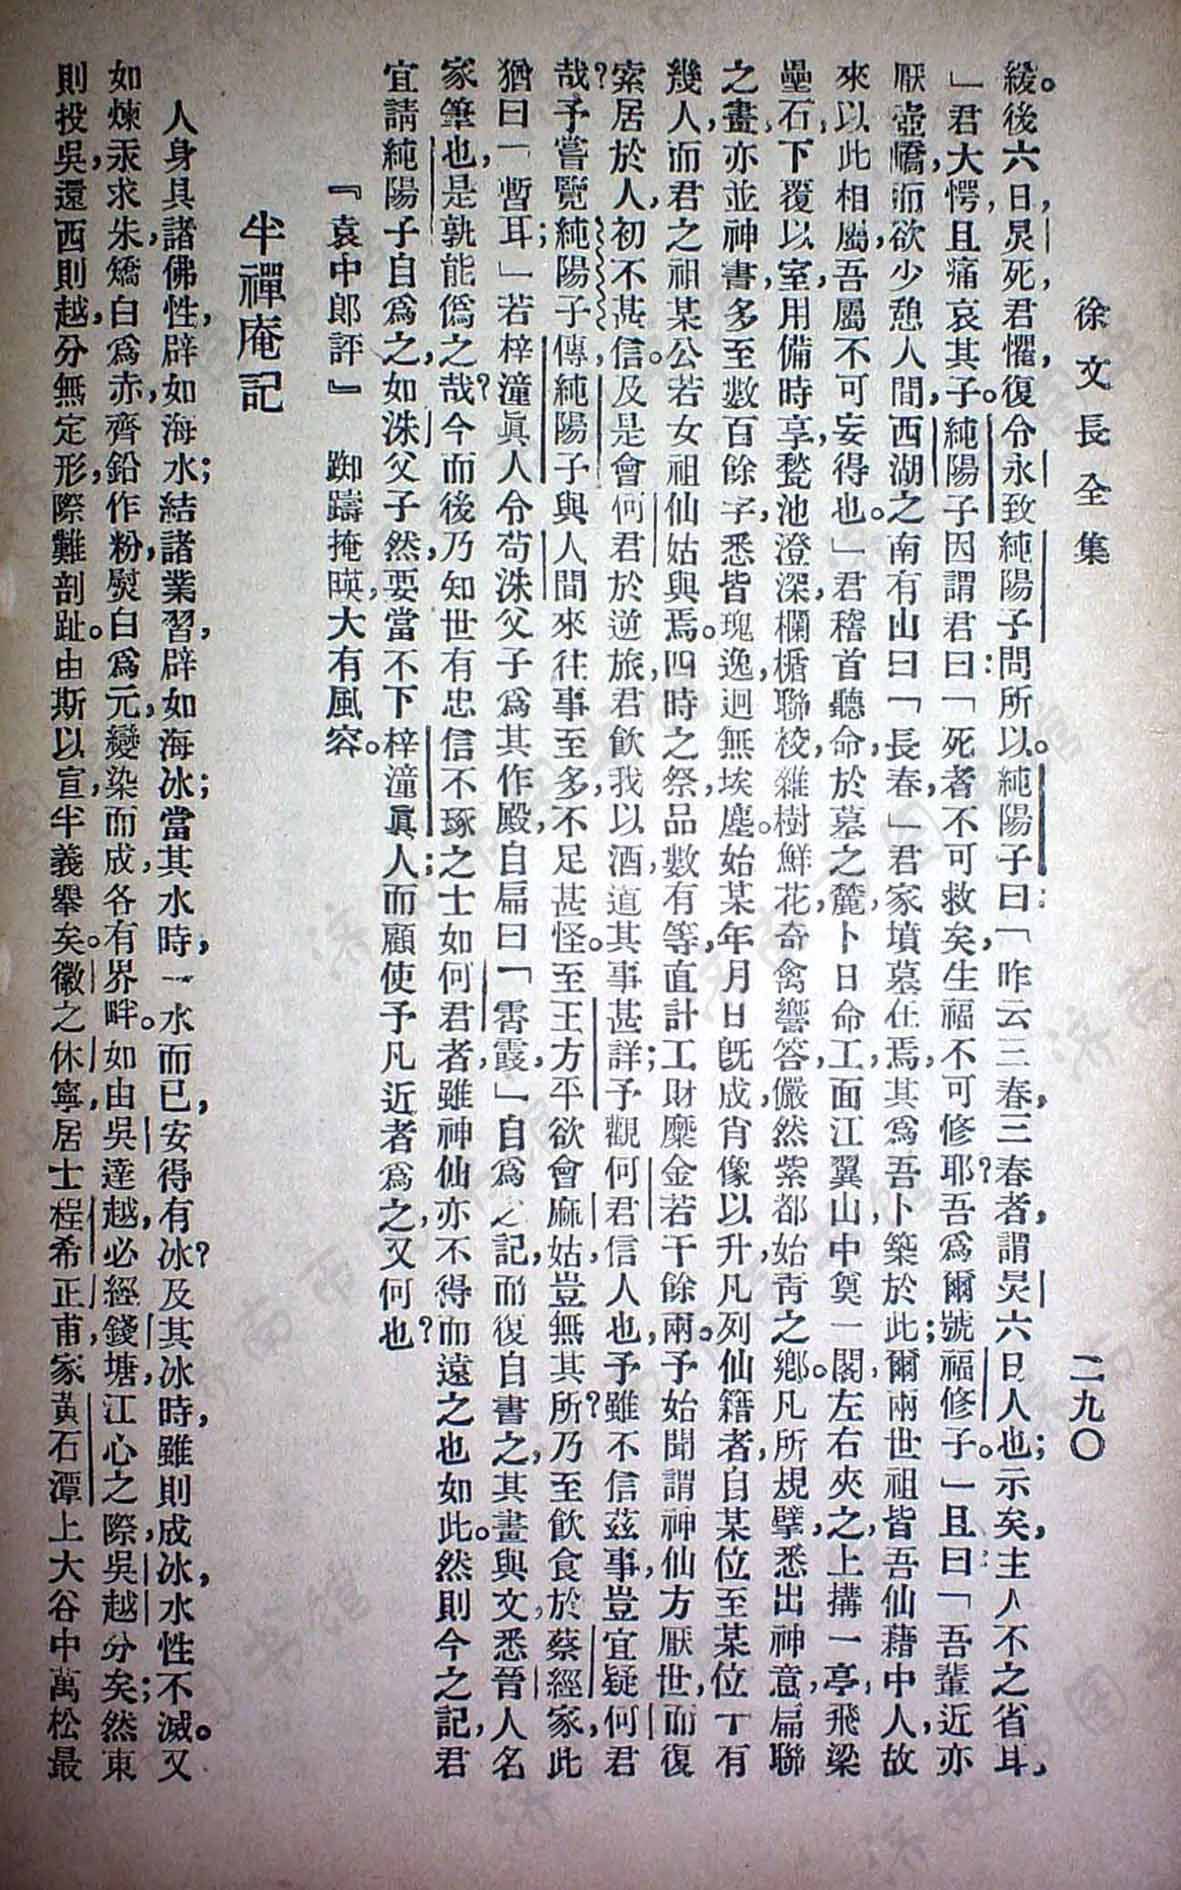 徐文長全集
二九〇
緩。後六日，炅死，君懼，復令永致純陽子，問所以。純陽子曰：「昨云三春，三春者，謂炅六日人也；示矣，主人不之省耳，
」君大愕，且痛哀其子。純陽子因謂君曰：「死者不可救矣，生福不可修耶？吾爲爾號福修子。」且曰：「吾輩近亦
厭壺嶠，而欲少憩人間，西湖之南有山曰「長春，」君家墳墓在焉，其爲吾卜築於此；爾兩世祖皆吾仙藉中人，故
來以此相屬，吾屬不可妄得也。」君稽首聽命，於墓之麓，卜日命工，面江翼山，中奠一閣，左右夾之，上搆一亭，飛梁
壘石，下覆以室，用備時享，甃池澄深，欄楯聯校，雜樹鮮花，奇禽響答，儼然紫都始青之鄉。凡所規擘，悉出神意，扁聯
之畫，亦並神書，多至數百餘字，悉皆瑰逸，迥無埃塵。始某年月日，旣成肖像以升，凡列仙籍者，自某位至某位丁有
幾人，而君之祖某公若女祖仙姑與焉。四時之祭，品數有等，直計工財，糜金若干餘兩。予始聞謂神仙方厭世，而復
索居於人，初不甚信。及是會何君於逆旅，君飲我以酒，道其事甚詳，予觀何君，信人也，予雖不信茲事，豈宜疑何君
哉？予嘗覽純陽子傳，純陽子與人間來往事至多，不足甚怪。至王方平欲會麻姑，豈無其所？乃至飲食於蔡經家，此
猶曰「暫耳」；若梓潼眞人令苟洙父子爲其作殿，自扁曰「霱霞，」自爲之記，而復自書之，其畫與文，悉晉人名
家筆也，是孰能僞之哉？今而後乃知世有忠信不琢之士如何君者，雖神仙亦不得而遠之也如此。然則今之記，君
宜請純陽子自爲之，如洙父子然，要當不下梓潼眞人；而顧使予凡近者爲之，又何也？
『袁中郎評』　踟躊掩暎，大有風容。
半禪庵記
人身具諸佛性，辟如海水；結諸業習，辟如海冰；當其水時，一水而已，安得有冰？及其冰時，雖則成冰，水性不滅。又
如煉汞求朱，矯白爲赤，齊鉛作粉，熨白爲元，變染而成，各有界畔。如由吳達越，必經錢塘，江心之際，吳越分矣；然東
則投吳，還西則越，分無定形，際難剖趾。由斯以宣，半義舉矣。徽之休寧，居士程希正甫，家黃石潭上大谷中，萬松最